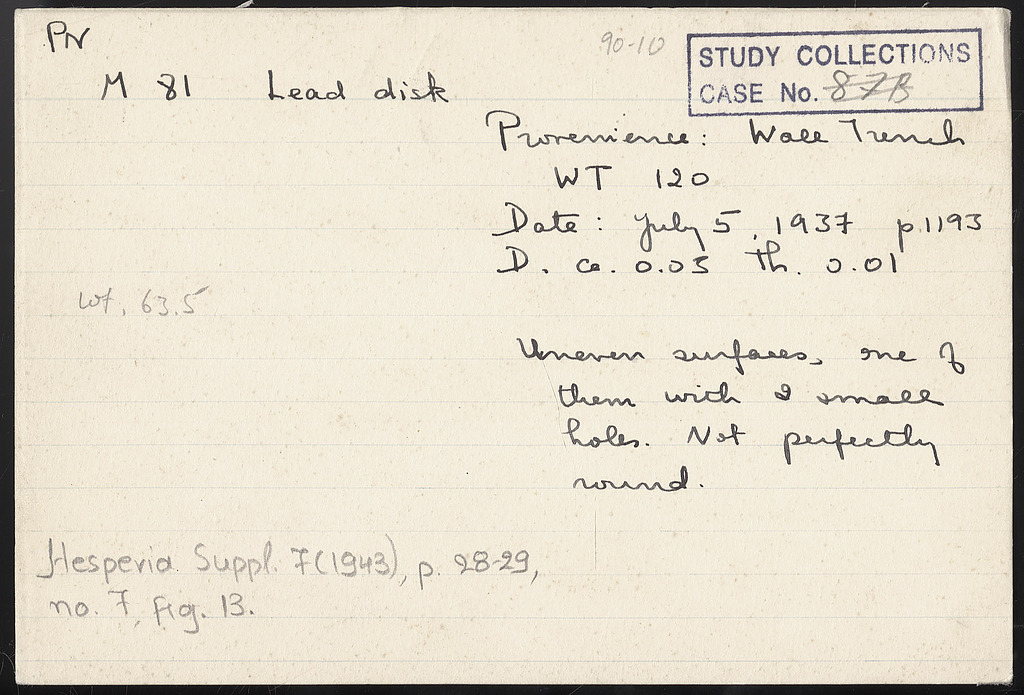 PN
90-10
STUDY COLLECTIONS
CASE No. 87B
M 81 Lead disk
Provenience: Wall Trench
WT 120
Date: July 5, 1937 p.1193
D. ca. 0.03 Th. 0.01
Wt. 63.5
Uneven surfaces, one of
them with 2 small
holes. Not perfectly
round.
Hesperia Suppl. 7 (1943), p. 28-29,
no. 7, fig. 13.